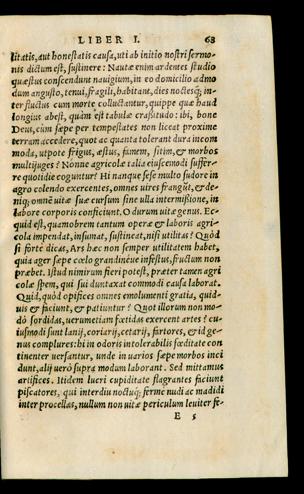 LIBER I. 63
litatis, aut honestatis causa, uti ab initio nostri sermo-
nis dictum est, sustinere: Nautæ enim ardentes studio
quæstus conscendunt nauigium, in eo domicilio admo
dum angusto, tenui, fragili, habitant, dies noctesq́;, in-
ter fluctus cum morte colluctantur, quippe quæ haud
longius abest, quàm est tabulæ crassitudo: ibi, bone
Deus, cùm sæpe per tempestates non liceat proxime
terram accedere, quot ac quanta tolerant dura incom
moda, utpote frigus, æstus, famem, sitim, & morbos
multijuges? Nonne agricolæ talia eiuscemodi suffer-
re quotidie coguntur? Hi nanque sese multo sudore in
agro colendo exercentes, omnes uires frangūt, & de-
niq́; omnē uitæ suæ cursum sine ulla intermissione, in
labore corporis conficiunt. O durum uitæ genus. Ec-
quid est, quamobrem tantum operæ & laboris agri-
cola impendat, insumat, sustineat, nisi utilitas? Quòd
si fortè dicas, Ars hæc non semper utilitatem habet,
quia ager sæpe cœlo grandinéue infestus, fructum non
præbet. Istud nimirum fieri potest, præter tamen agri
colæ spem, qui sui duntaxat commodi causa laborat.
Quid, quòd opifices omnes emolumenti gratia, quid-
uis & faciunt, & patiuntur? Quot illorum non mo-
dò sordidas, uerumetiam fœtidas exercent artes? cu-
iusmodi sunt lanij, coriarij, cetarij, fartores, & id ge-
nus complures: hi in odoris intolerabilis fœditate con
tinenter uersantur, unde in uarios sæpe morbos inci
dunt, alij uerò supra modum laborant. Sed mittamus
artifices. Itidem lucri cupiditate flagrantes faciunt
piscatores, qui interdiu noctuq́; ferme nudi ac madidi
inter procellas, nullum non uitæ periculum leuiter fe-
E 5